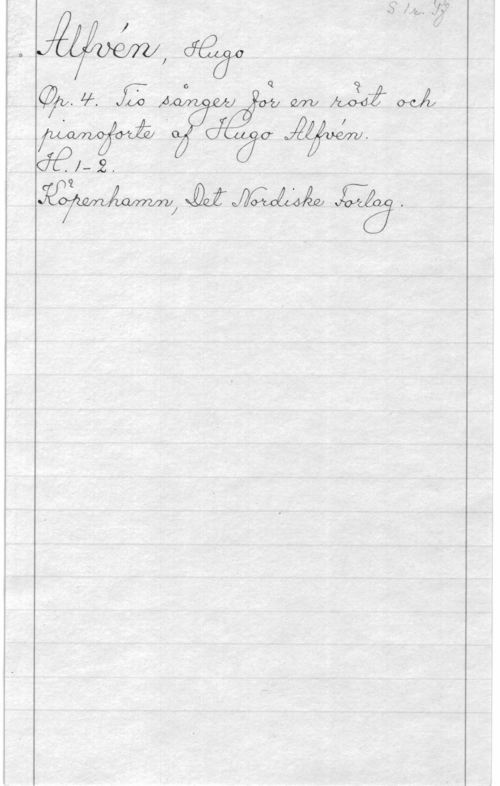 S 1r.
Alfvén, Hugo
Op. 4. Tio sånger för en röst och
pianoforte af Hugo Alfvén.
H. 1-2.
Köpenhamn, Det Nordiske Forlag.